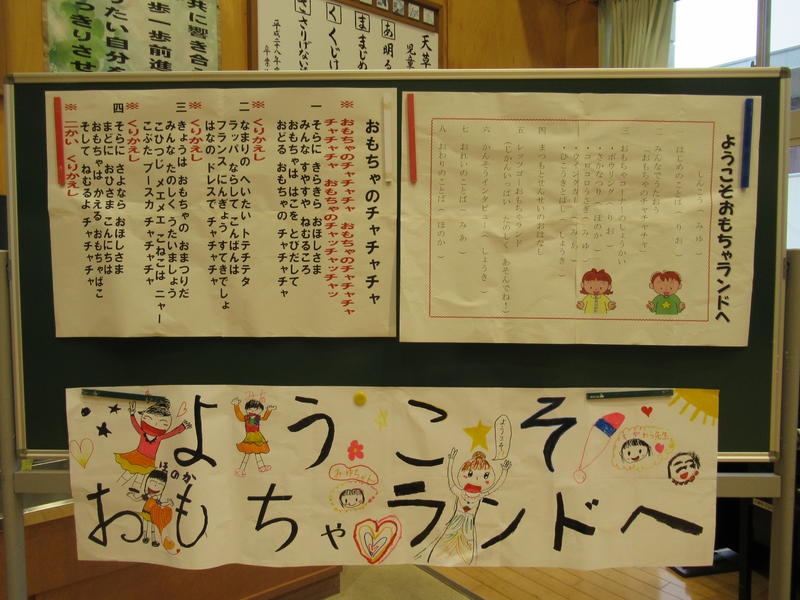 共に響き合
歩一歩前進
りたい自分を
っきりさせ
天草
児童
あ明る
ままじめ
くくじけ
ささりげない
平成二十八年度
おもちゃのチャチャチャ
※ おもちゃのチャチャチャ おもちゃのチャチャチャ
チャチャチャ おもちゃのチャッチャッチャッ
一 そらに きらきら おほしさま
みんな すやすや ねむるころ
おもちゃは はこを とびだして
おどる おもちゃの チャチャチャ
※くりかえし
二 なまりの へいたい トテチテタ
ラッパ ならして こんばんは
フランス にんぎょう すてきでしょ
はなの ドレスで チャチャチャ
※くりかえし
三 きょうは おもちゃの おまつりだ
みんな たのしく うたいましょう
こひつじ メエメエ こねこは ニャー
こぶた ブースカ チャチャチャ
※くりかえし
四 そらに さよなら おほしさま
まどに おひさま こんにちは
おもちゃは かえる おもちゃばこ
そして ねむるよ チャチャチャ
※二かい くりかえし
ようこそおもちゃランドへ
しんこう( みゆ )
一 はじめのことば( りお )
二 みんなでうたおう
「おもちゃのチャチャチャ」
三 おもちゃコーナーのしょうかい
・ボウリング( りお )
・さかなつり( ほのか )
・コロコロうさぎ( みゆ )
・ひこうきとばし( しょうき )
四 まつもとせんせいのおはなし
五 レッツゴーおもちゃランド
(じかんいっぱい たのしく あそんでね!)
六 かんそうインタビュー( しょうき )
七 おれいのことば( みあ )
八 おわりのことば( ほのか )
ようこそ
おもちゃランドへ
ほのか
みゆちゃん
ようこそ!